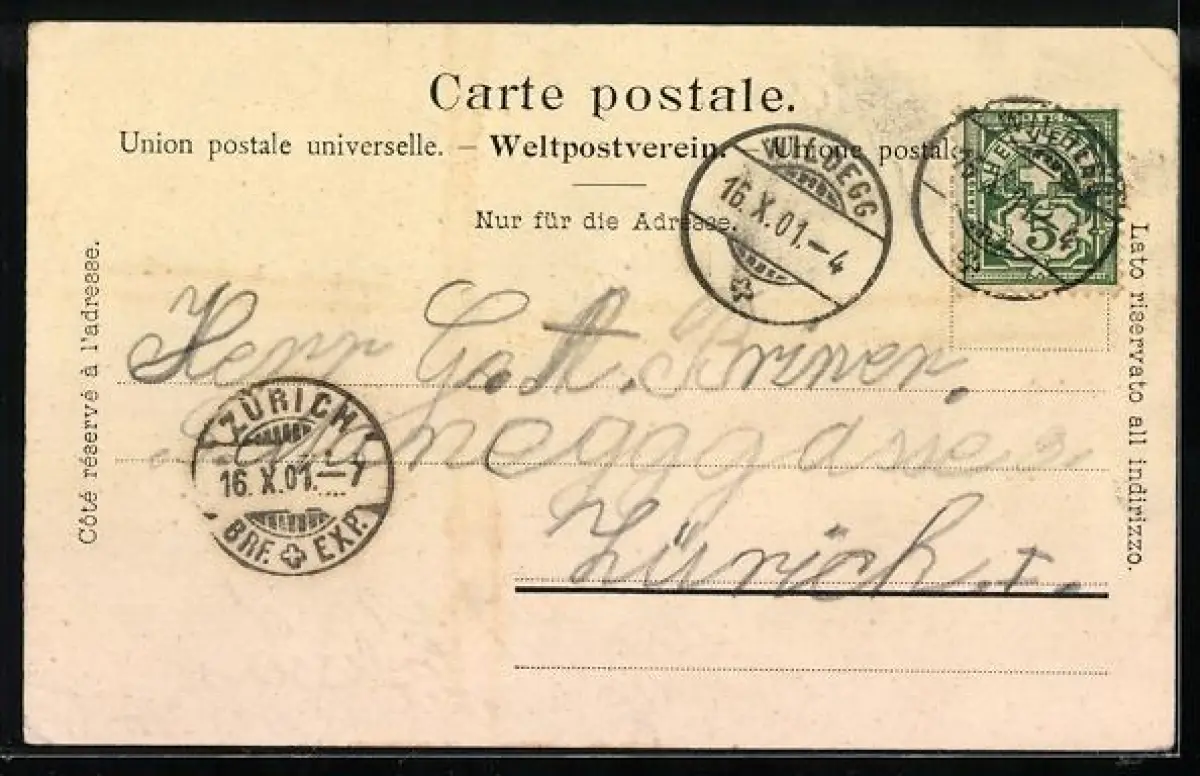 Carte postale.
Union postale universelle. – Weltpostverein. – Unione postale
Nur für die Adresse.
WILDEGG
16.X.01.–4
5
Côté réservé à l'adresse.
Lato riservato all indirizzo.
Herr Gott. Briner,
ZÜRICH
16.X.01.–7
BRF. EXP.
Zürich. I.